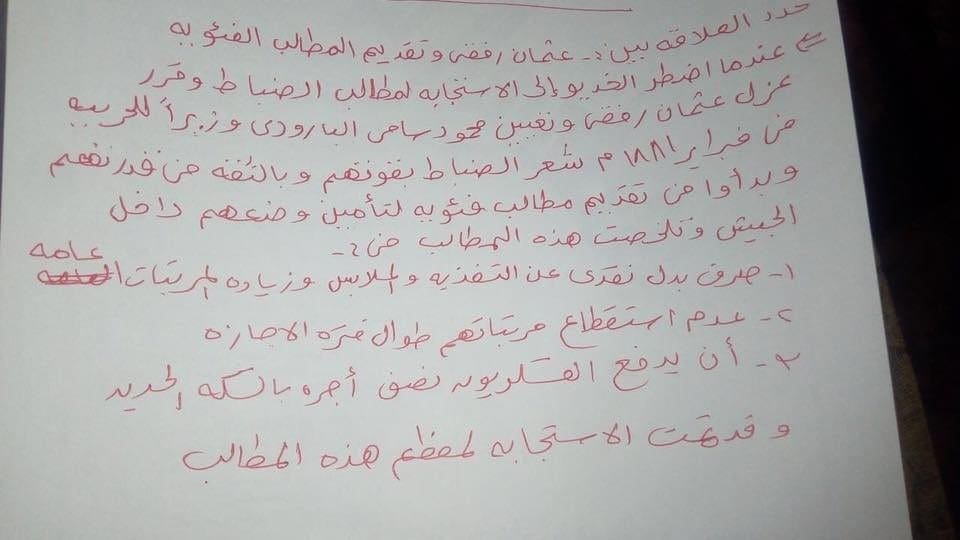 حدد العلاقه بين :- عثمان رفقى وتقديم المطالب الفئويه
⇐ عندما اضطر الخديو إلى الاستجابه لمطالب الضباط وقرر
عزل عثمان رفقى وتعيين محمود سامى البارودى وزيراً للحربيه
فى فبراير ١٨٨١ م شعر الضباط بقوتهم وبالثقه فى قدرتهم
وبدأوا فى تقديم مطالب فئويه لتأمين وضعهم داخل
الجيش وتلخصت هذه المطالب فى :-
١- صرف بدل نقدى عن التغذيه والملابس وزياده المرتبات عامه
٢- عدم استقطاع مرتباتهم طوال فتره الاجازه
٣- أن يدفع العسكريون نصف أجره بالسكه الحديد
وقد تمت الاستجابه لمعظم هذه المطالب